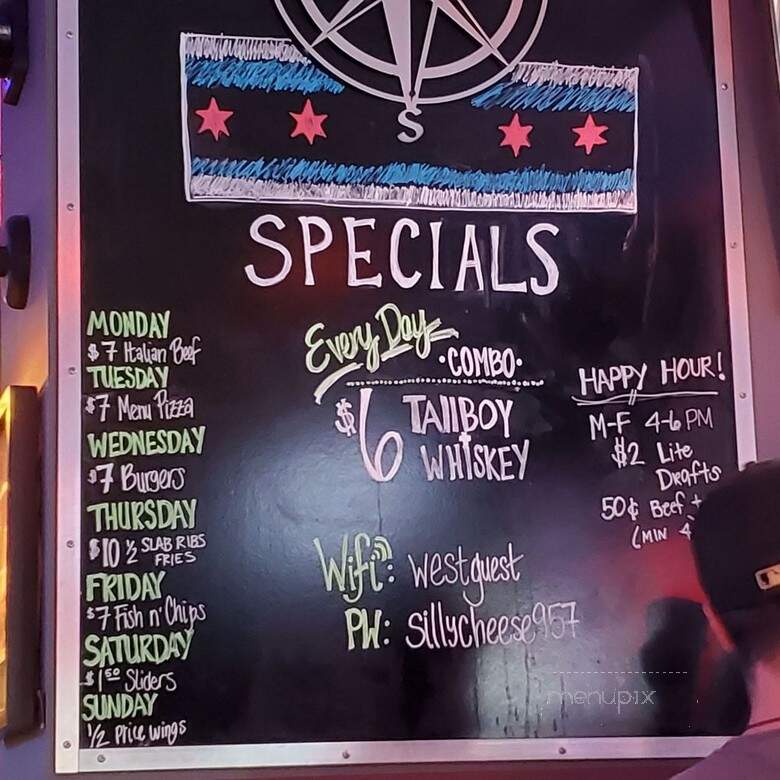 S
SPECIALS
MONDAY
$7 Italian Beef
TUESDAY
$7 Menu Pizza
WEDNESDAY
$7 Burgers
THURSDAY
$10 ½ SLAB RIBS
FRIES
FRIDAY
$7 Fish n' Chips
SATURDAY
$1.50 Sliders
SUNDAY
½ Price wings
Every Day
·COMBO·
$6 TAllBOY
+ WHISKEY
Wifi: westguest
PW: sillycheese957
HAPPY HOUR!
M-F 4-6 PM
$2 Lite
Drafts
50¢ Beef +
(MIN 4
menupix